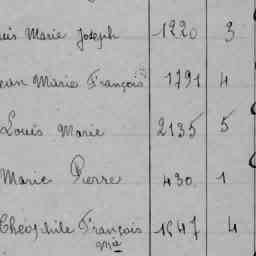 Marie Joseph 1220 3
Marie François 1791 4
Louis Marie 2135 5
Marie Pierre 430 1
Théophile François 1547 4
Mie